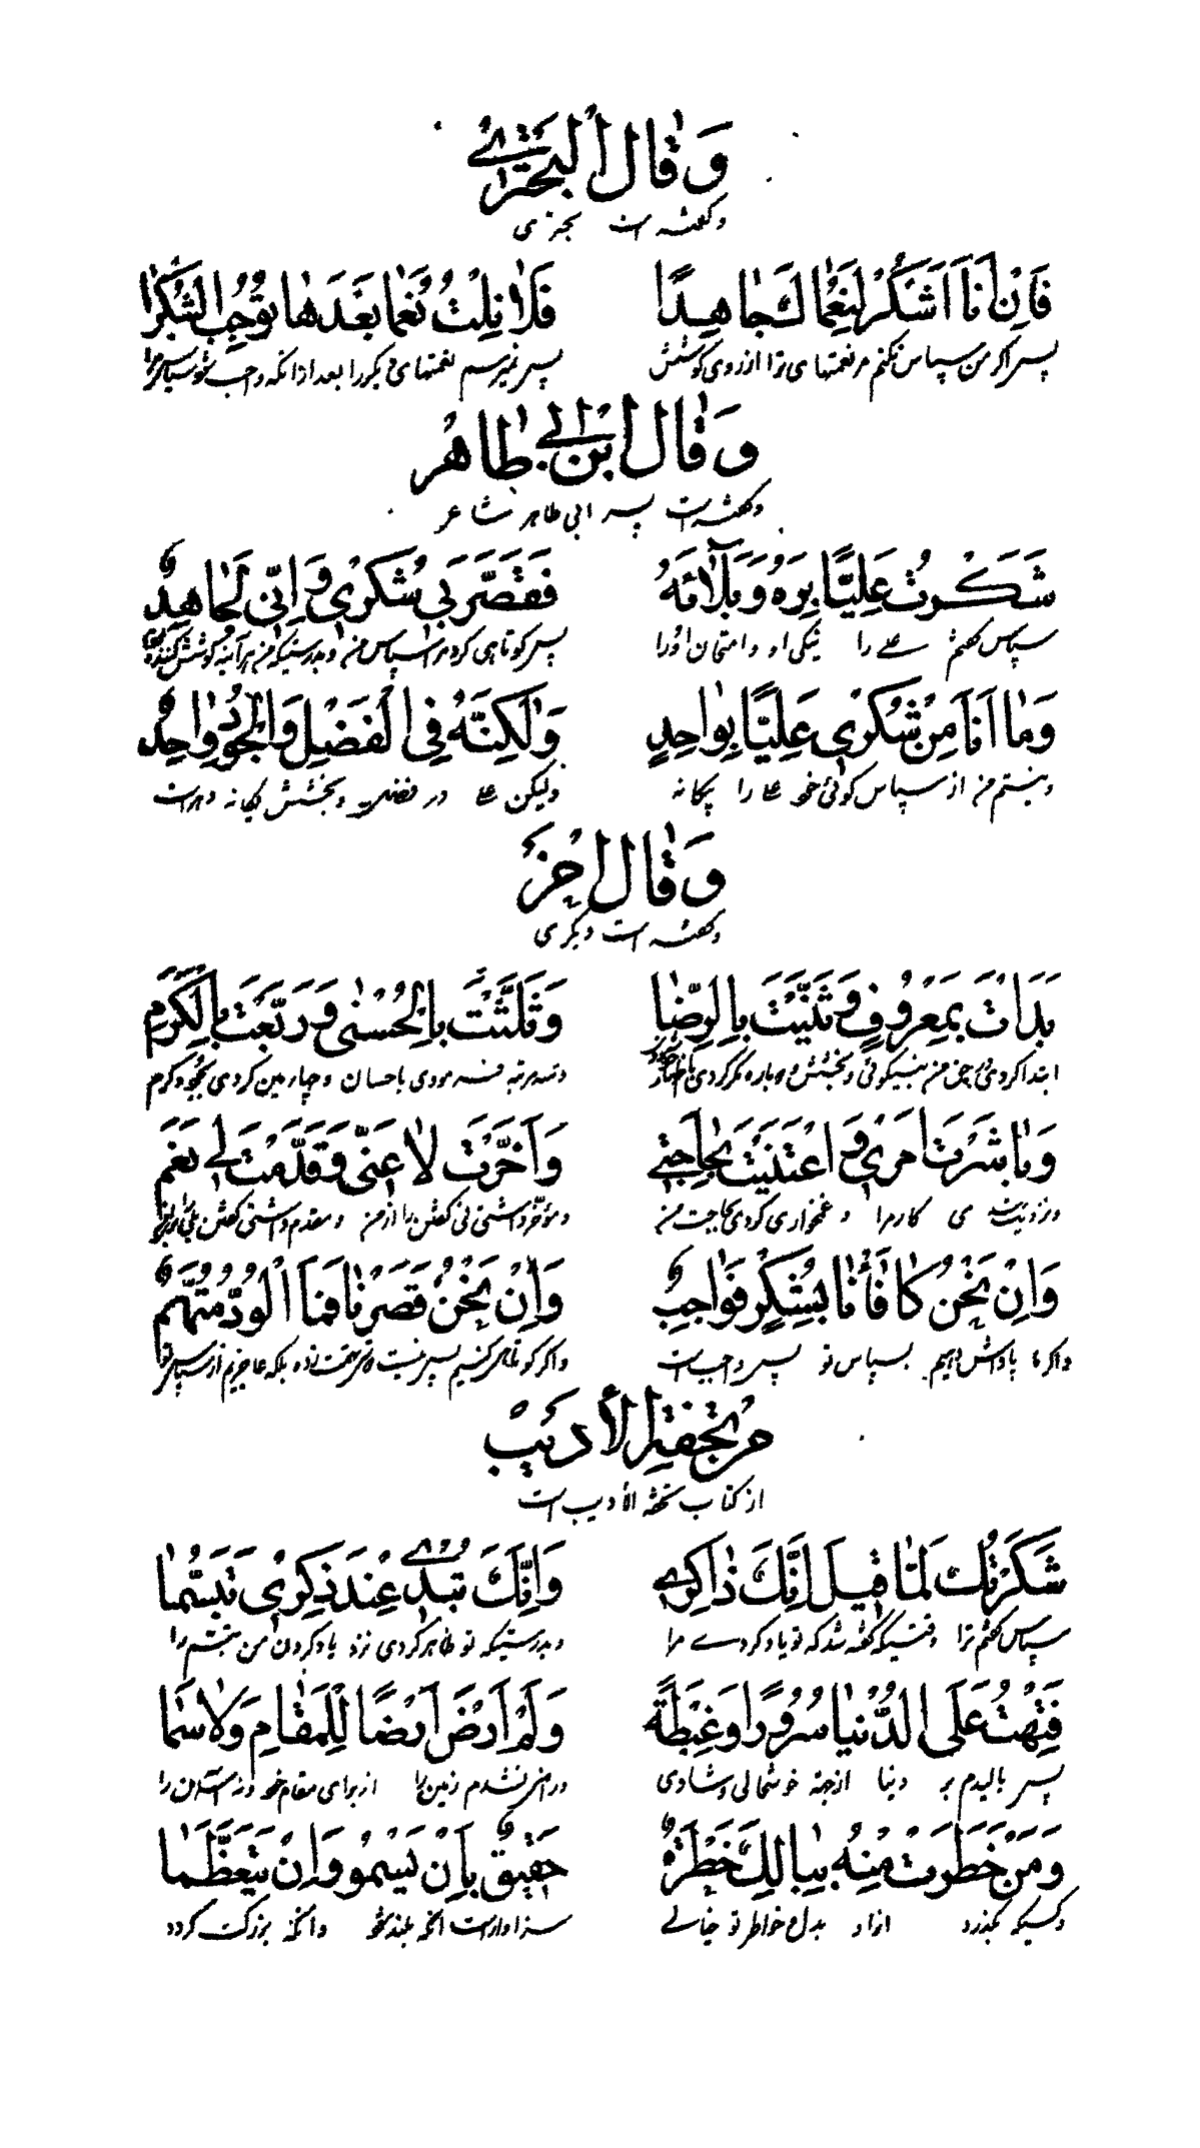 وَقَالَ الْبُحْتُرِيُّ
و گفته است بحتری
فَاِنْ اَنَا اَشْكُرْ لِنُعْمَاكَ جَاهِدًا فَلَا نِلْتُ نُعْمَا بَعْدَهَا تُوْجِبُ الشُّكْرَا
پس اگر من سپاس نکنم مر نعمتهای ترا از روی کوشش پس نمیرسم نعمتهای دیگر را بعد از انکه واجب شود سپاس مرا
وَقَالَ ابْنُ اَبِيْ طَاهِرٍ
و گفته است پسر ابی طاهر شاعر
شَكَرْتُ عَلِيًّا بِرَّهُ وَ بَلَآئَهُ فَقَصَّرَ بِيْ شُكْرِيْ وَ اِنِّيْ لَجَاهِدٌ
سپاس گفتم علے را نیکی او و امتحان او را پس کوتاهی کرد مرا سپاس من و بدرستیکه من هر آینه کوشش کننده
وَمَا اَنَا مِنْ شُكْرِيْ عَلِيًّا بِوَاحِدٍ وَلٰكِنَّهُ فِي الْفَضْلِ وَالْجُوْدِ وَاحِدٌ
و نیستم من از سپاس گوئی خود علی را یگانه ولیکن علی در فضل و بخشش یگانه دهر است
وَقَالَ اٰخَرُ
و گفته است دیگری
بَدَاْتَ بِمَعْرُوْفٍ وَ ثَنَّيْتَ بِالرِّضَا وَ ثَلَّثْتَ بِالْحُسْنٰى وَ رَبَّعْتَ بِالْكَرَمِ
ابتدا کردی من بنیکوئی و بخشش و دوباره مکرر کردی و سه مرتبه فرمودی باحسان و چهارمین کردی بجود و کرم
وَ بَاشَرْتَ اَمْرِيْ وَ اعْتَنَيْتَ بِحَاجَتِيْ وَ اَخَّرْتَ لَا عَنِّيْ وَ قَدَّمْتَ لِيْ نَعَمْ
کار مرا و غمخواری کردی بحاجت من و مؤخر داشتی نی گفتن را از من و مقدم داشتی گفتن
وَ اِنْ نَحْنُ كَافَأْنَا بِشُكْرٍ فَوَاجِبٌ وَ اِنْ نَحْنُ قَصَّرْنَا فَمَا الْوُدُّ مُتَّهَمٌ
و اگر ما پاداش دهیم بسپاس تو پس واجب است و اگر کوتاهی کنیم پس نیست بلکه عاجزیم از سپاس
مِنْ تُحْفَةِ الْاَدِيْبِ
از کتاب تحفة الادیب است
شَكَرْتُكَ لَمَّا قِيْلَ اِنَّكَ ذَاكِرِيْ وَ اِنَّكَ تُبْدِيْ عِنْدَ ذِكْرِيْ تَبَسُّمَا
سپاس گفتم ترا وقتیکه گفته شد که تو یاد کردے مرا و بدرستیکه تو ظاهر کردی نزد یاد کردن من تبسم را
فَتِهْتُ عَلَى الدُّنْيَا سُرُوْرًا وَ غِبْطَةً وَ لَمْ اَرْضَ اَرْضًا لِلْمَقَامِ وَلَا سَمَا
پس بالیدم بر دنیا از جهة خوشحالی و شادی و راضی نشدم زمین را از برای مقام خود و نه آسمان را
وَ مَنْ خَطَرَتْ مِنْهُ بِبَالِكَ خَطْرَةٌ حَقِيْقٌ بِاَنْ يَسْمُوْ وَ اَنْ يَتَعَظَّمَا
و کسیکه بگذرد از او بدل و خاطر تو خیالے سزاوار است انکه بلند شود و انکه بزرگ گردد